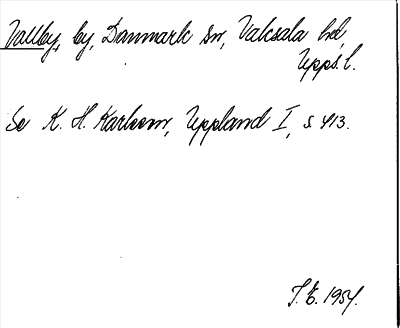 Vallby, by, Danmark sn, Vaksala hd,
Upps. l.
Se K. H. Karlsson, Uppland I, s 413.
T. E. 1954.